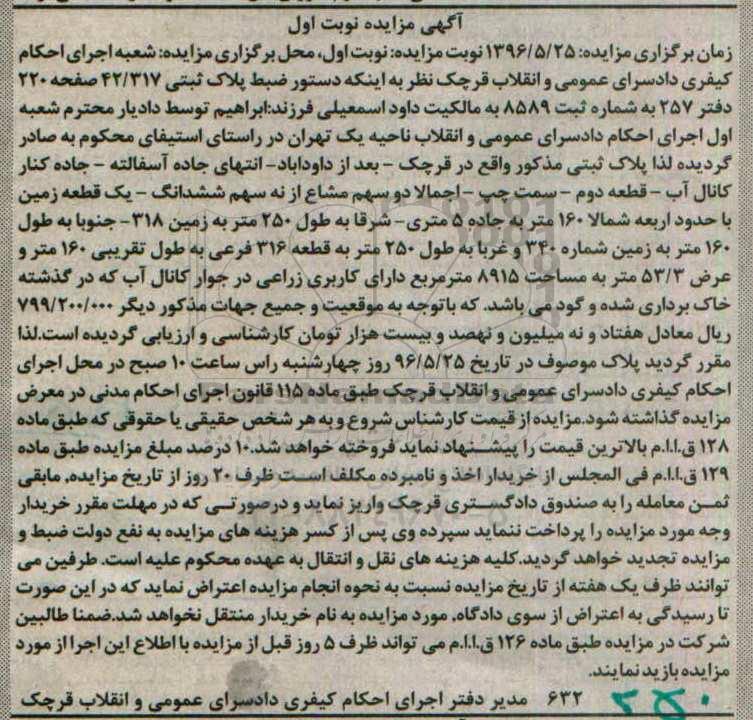 آگهی مزایده نوبت اول
زمان برگزاری مزایده: ۱۳۹۶/۵/۲۵ نوبت مزایده: نوبت اول، محل برگزاری مزایده: شعبه اجرای احکام
کیفری دادسرای عمومی و انقلاب قرچک نظر به اینکه دستور ضبط پلاک ثبتی ۴۲/۳۱۷ صفحه ۲۲۰
دفتر ۲۵۷ به شماره ثبت ۸۵۸۹ به مالکیت داود اسمعیلی فرزند:ابراهیم توسط دادیار محترم شعبه
اول اجرای احکام دادسرای عمومی و انقلاب ناحیه یک تهران در راستای استیفای محکوم به صادر
گردیده لذا پلاک ثبتی مذکور واقع در قرچک - بعد از داوداباد- انتهای جاده آسفالته - جاده کنار
کانال آب - قطعه دوم - سمت چپ - اجمالا دو سهم مشاع از نه سهم ششدانگ - یک قطعه زمین
با حدود اربعه شمالا ۱۶۰ متر به جاده ۵ متری- شرقا به طول ۲۵۰ متر به زمین ۳۱۸- جنوبا به طول
۱۶۰ متر به زمین شماره ۳۴۰ و غربا به طول ۲۵۰ متر به قطعه ۳۱۶ فرعی به طول تقریبی ۱۶۰ متر و
عرض ۵۳/۳ متر به مساحت ۸۹۱۵ مترمربع دارای کاربری زراعی در جوار کانال آب که در گذشته
خاک برداری شده و گود می باشد. که باتوجه به موقعیت و جمیع جهات مذکور دیگر ۷۹۹/۲۰۰/۰۰۰
ریال معادل هفتاد و نه میلیون و نهصد و بیست هزار تومان کارشناسی و ارزیابی گردیده است.لذا
مقرر گردید پلاک موصوف در تاریخ ۹۶/۵/۲۵ روز چهارشنبه راس ساعت ۱۰ صبح در محل اجرای
احکام کیفری دادسرای عمومی و انقلاب قرچک طبق ماده ۱۱۵ قانون اجرای احکام مدنی در معرض
مزایده گذاشته شود.مزایده از قیمت کارشناس شروع و به هر شخص حقیقی یا حقوقی که طبق ماده
۱۲۸ ق.ا.ا.م بالاترین قیمت را پیشنهاد نماید فروخته خواهد شد.۱۰ درصد مبلغ مزایده طبق ماده
۱۲۹ ق.ا.ا.م فی المجلس از خریدار اخذ و نامبرده مکلف است ظرف ۲۰ روز از تاریخ مزایده، مابقی
ثمن معامله را به صندوق دادگستری قرچک واریز نماید و درصورتی که در مهلت مقرر خریدار
وجه مورد مزایده را پرداخت ننماید سپرده وی پس از کسر هزینه های مزایده به نفع دولت ضبط و
مزایده تجدید خواهد گردید.کلیه هزینه های نقل و انتقال به عهده محکوم علیه است. طرفین می
توانند ظرف یک هفته از تاریخ مزایده نسبت به نحوه انجام مزایده اعتراض نماید که در این صورت
تا رسیدگی به اعتراض از سوی دادگاه، مورد مزایده به نام خریدار منتقل نخواهد شد.ضمنا طالبین
شرکت در مزایده طبق ماده ۱۲۶ ق.ا.ا.م می تواند ظرف ۵ روز قبل از مزایده با اطلاع این اجرا از مورد
مزایده بازید نمایند.
۶۳۲ مدیر دفتر اجرای احکام کیفری دادسرای عمومی و انقلاب قرچک